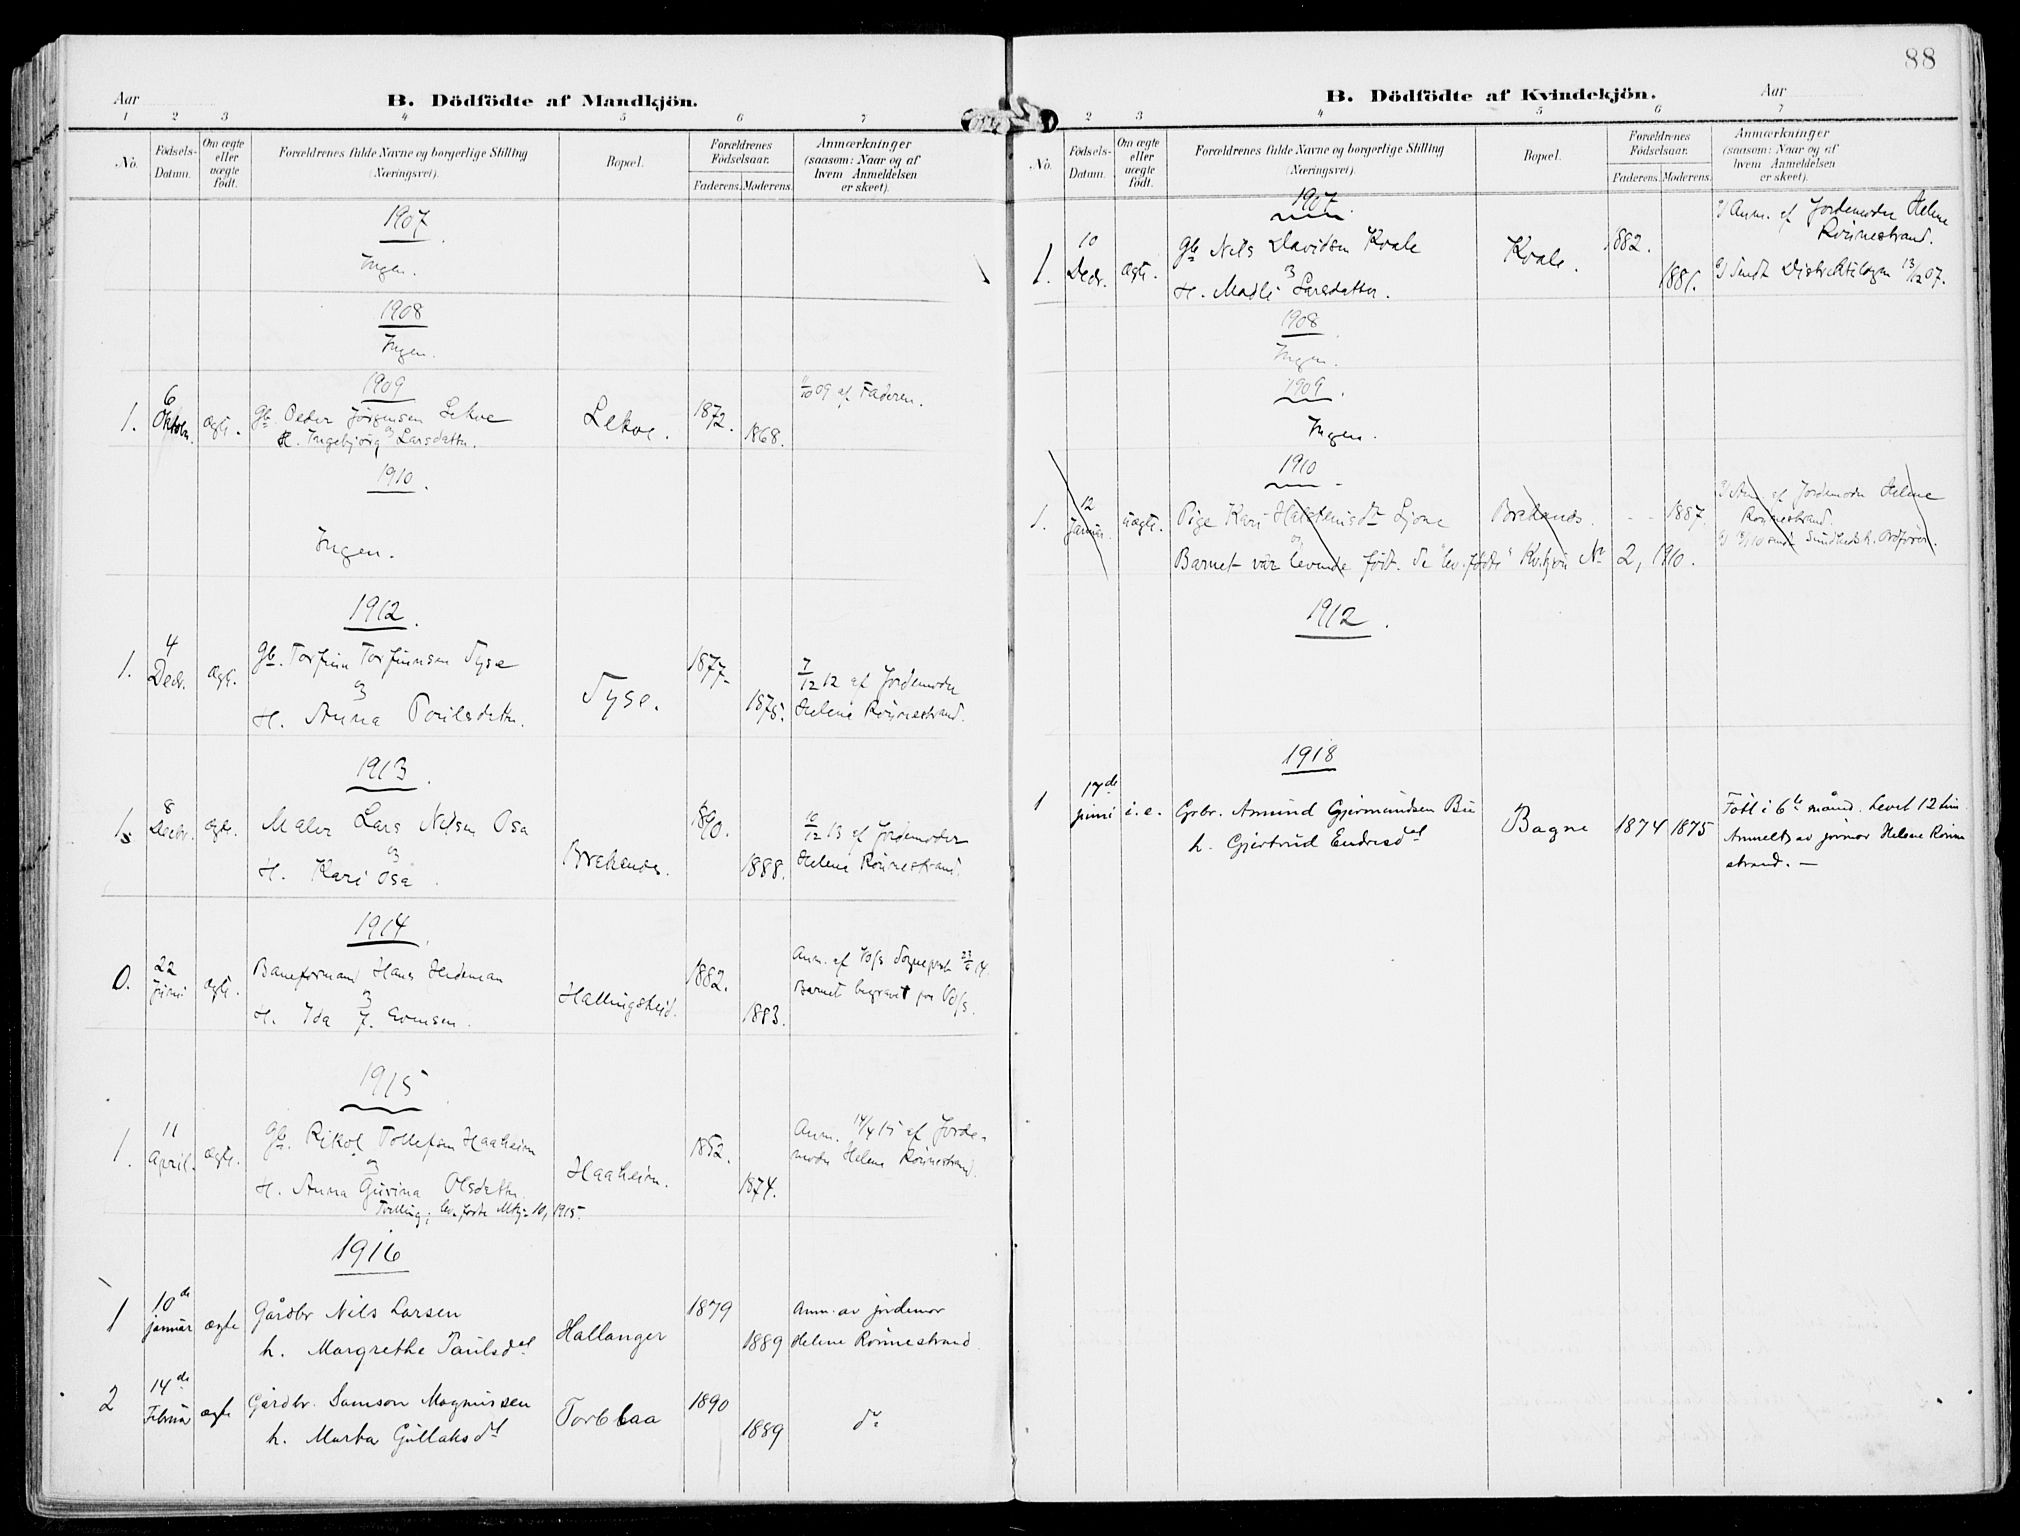 88
Aar
B. Dödfödte af Mandkjön.
1 2 3 4 5 6 7
No.
Födsels-Datum.
Om ægte eller uægte födt.
Forældrenes fulde Navne og borgerlige Stilling
(Næringsvei).
Bopæl.
Forældrenes Födselsaar.
Faderens. Moderens.
Anmærkninger
(saasom: Naar og af
hvem Anmeldelsen
er skeet).
1907
Ingen.
1908
Ingen.
1909
1. 6 Oktobr. ægte. Gb. Peder Jørgensen Lekve
og
H. Ingebjørg Larsdatter. Lekve. 1872. 1868. 11/10 09 af Faderen.
1910
Ingen.
1912
1. 4 Decbr. ægte. Gb. Torfinn Torfinnsen Tyse
og
H. Anna Poulsdatter. Tyse. 1877. 1875. 7/12 12 af Jordemoder
Helene Rönnestrand.
1913
1. 8 Decbr. ægte. Maler Lars Nelsen Osa
og
H. Kari Osa. Brekenæs. 1890. 1888. 10/12 13 af Jordemoder
Helene Rönnestrand.
1914
0. 22 Juni ægte. Baneformand Hans Hedeman
og
H. Ida F. Evensen. Hallingskeid. 1882. 1883. Anm. af Sogneprest 14.
Barnet begravet
1915
1. 11 April. ægte. Gb. Rikol Tollefsen Haaheim
og
H. Anna Guvina Olsdatter. Haaheim. 1852. 1874. Anm. 14/4 15 af Jorde-
moder Helene Rönnestrand.
Tvilling; lev. fødte Mkj. 10, 1915.
1916
1 10de januar ægte Gårdbr Nils Larsen
h. Margrethe Paulsdat Hallanger 1879 1889 Anm. av jordemor
Helene Rönnestrand.
2 14de Februar ægte Gårdbr. Samson Magnussen
h. Marta Gullaksdt Torblaa 1890 1889 do
B. Dödfödte af Kvindekjön.
Aar
2 3 4 5 6 7
No.
Födsels-Datum.
Om ægte eller uægte födt.
Forældrenes fulde Navne og borgerlige Stilling
(Næringsvei).
Bopæl.
Forældrenes Födselsaar.
Faderens. Moderens.
Anmærkninger
(saasom: Naar og af
hvem Anmeldelsen
er skeet).
1907.
1. 10 Decbr. ægte. Gb Nils Davidsen Kvale
og
H. Madli Larsdatter. Kvale. 1882. 1881. 1) Anm. af Jordemoder Helene
Rönnestrand.
2) Sendt Distriktslægen 13/12 07.
1908
Ingen.
1909.
Ingen.
1910
1. 12 Januar. uægte. Pige Kari Halstensdt Ljone Brekenæs. - - 1887. 1) Anm. af Jordemoder Helene
Rönnestrand.
2) sendt Sundhedsk. Ordfører.
Barnet var levende født. Se "lev. fødte" Kv.kjøn No 2, 1910.
1912.
1918
1 17de juni i.e. Grbr. Amund Gjermundsen Bu
h. Gjertrud Endresdat Bagne 1874 1875 Født i 6te månd. Levet 12 tim
Anmeldt av jormor Helene Rönne
strand. —